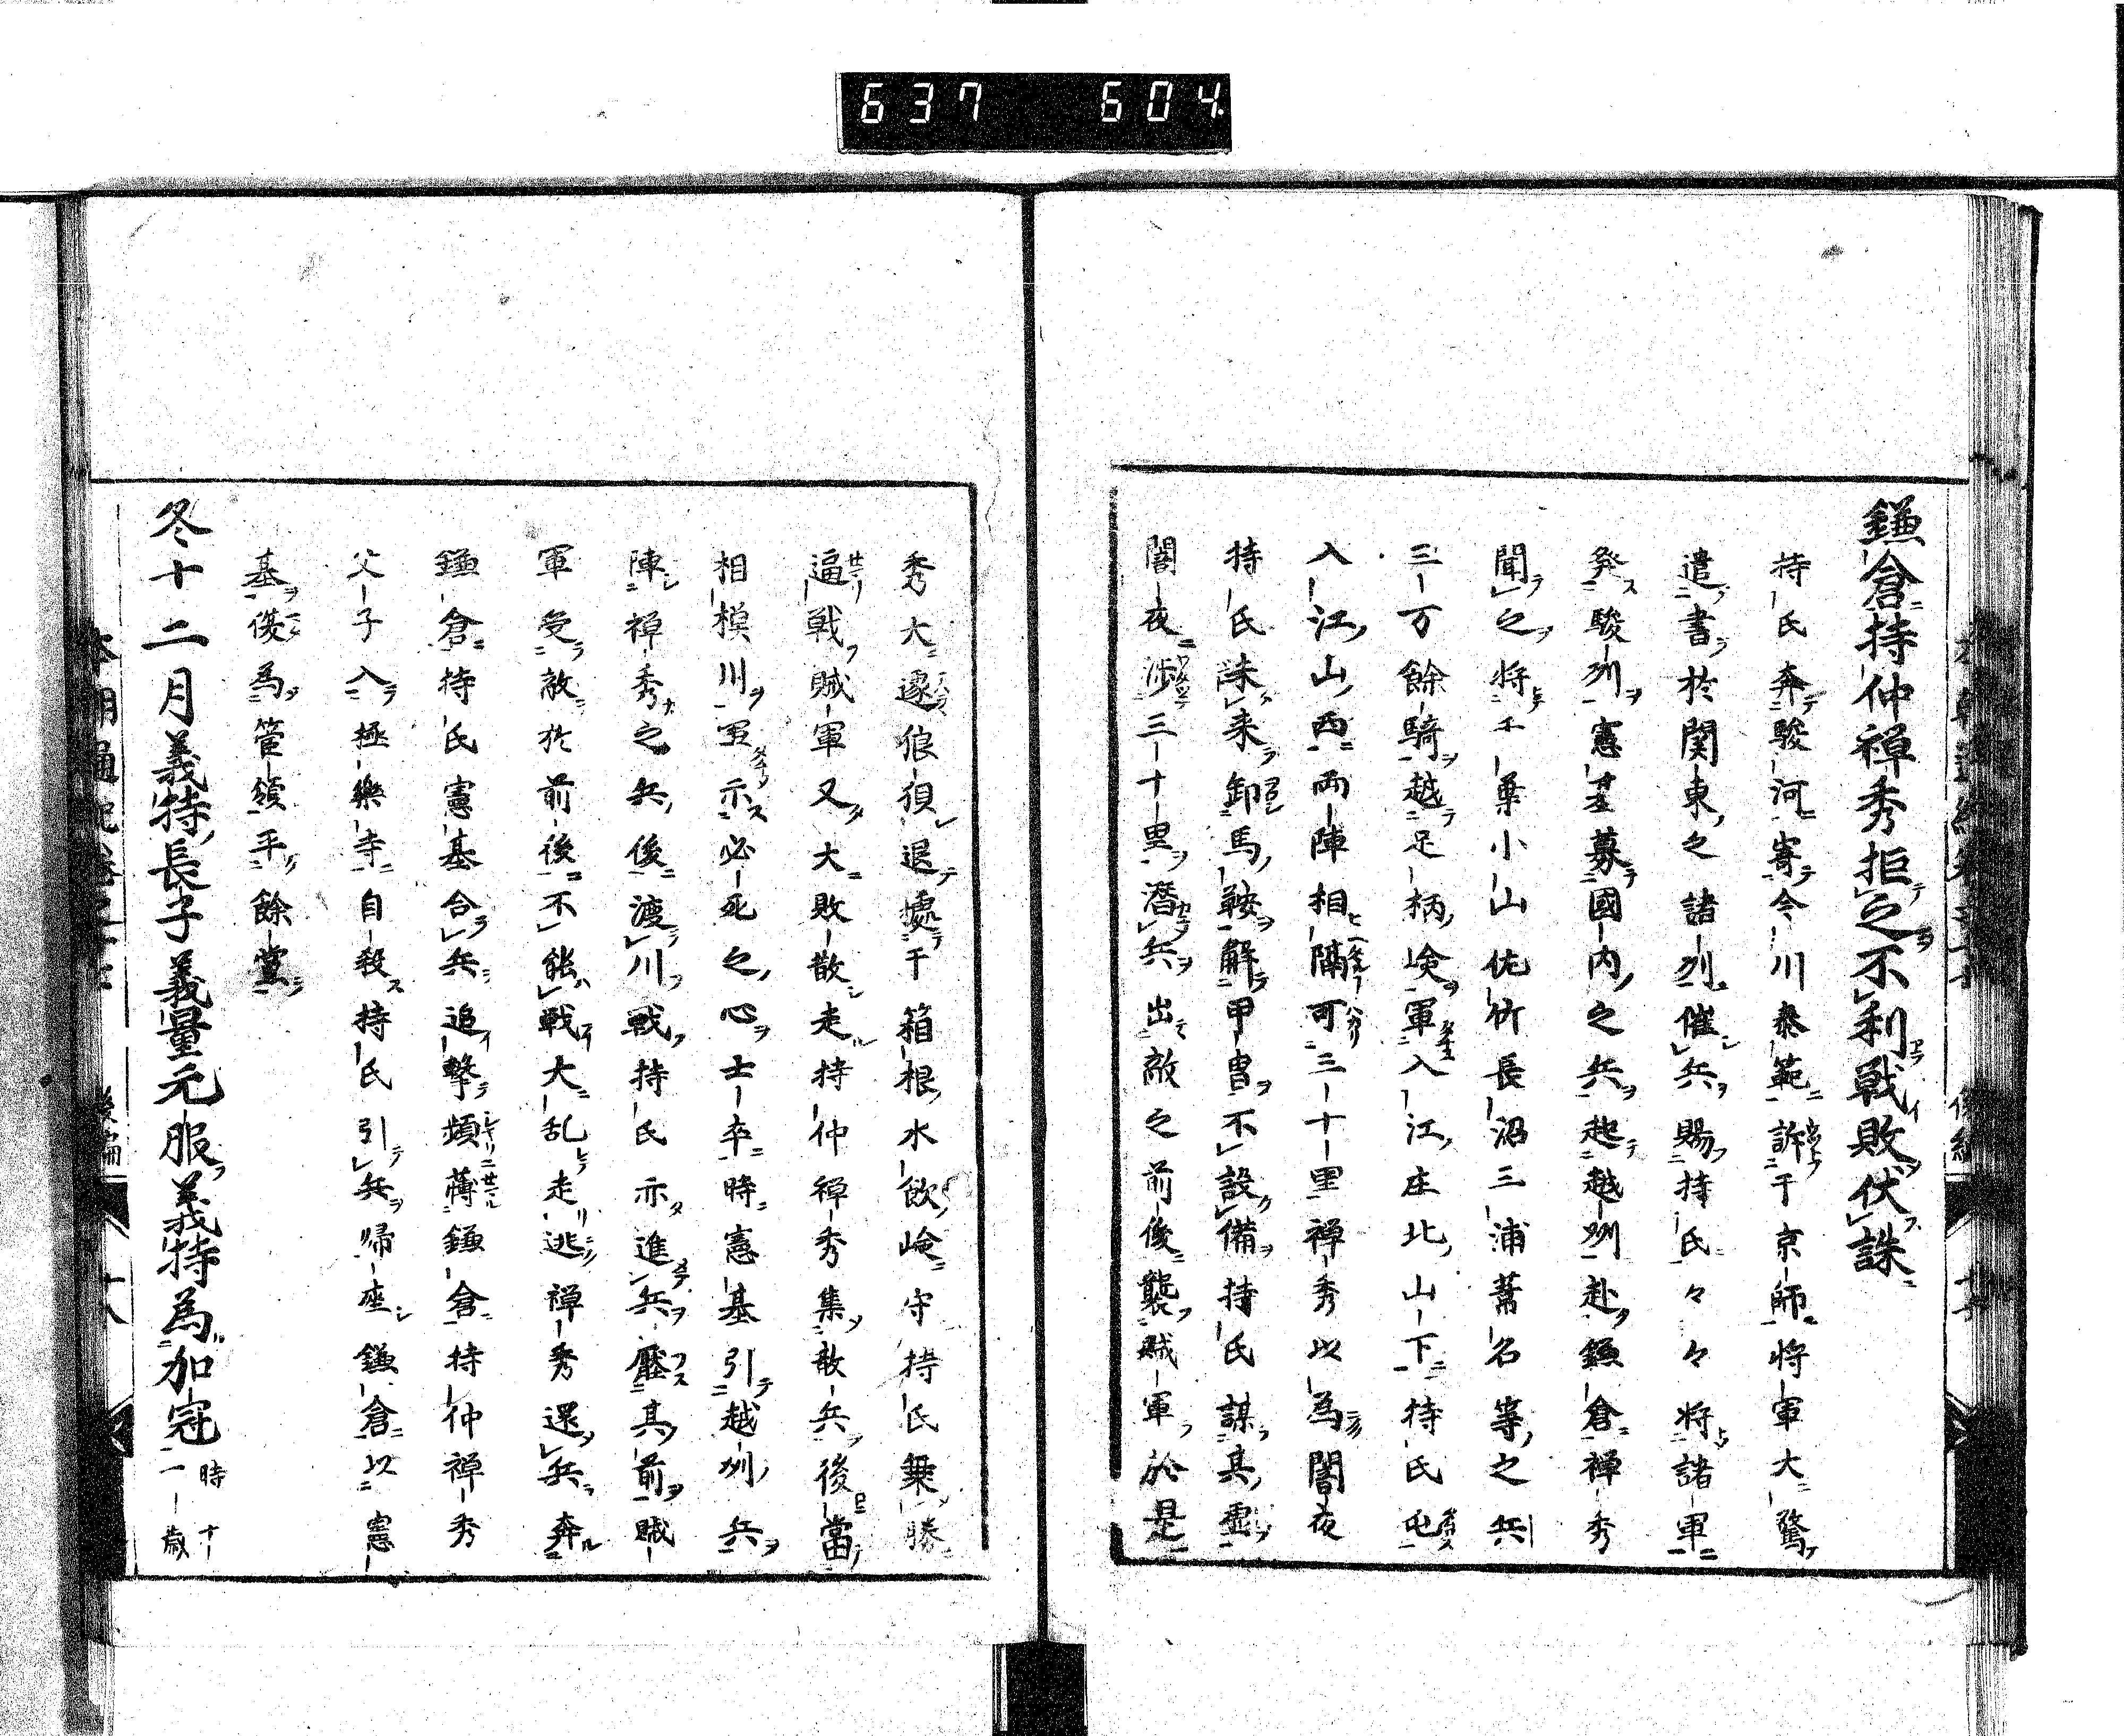 637 604
鎌倉持仲禅秀拒之不利戦敗伏誅
持氏奔駿河寄今川泰範訴于京師将軍大驚
遣書於関東之諸州催兵賜持氏々々将諸軍
発駿州憲基募國内之兵起越州赴鎌倉禅秀
聞之将千葉小山佐竹長沼三浦蘆名等之兵
三万餘騎越足柄嶮軍入江庄北山下持氏屯
入江山西両陣相隔可三十里禅秀以為闇夜
持氏誅来卸馬鞍解甲冑不設備持氏謀其虚
闇夜渉三十里潜兵出敵之前後襲賊軍於是
秀大遽狼狽退據于箱根水飲嶮守持氏乗勝
逼戦賊軍又大敗散走持仲禅秀集散兵後當
相模川軍示必死之心士卒時憲基引越州兵
陣禅秀之兵後渡川戦持氏亦進兵壓其前賊
軍受敵於前後不能戦大乱走逃禅秀還兵奔
鎌倉持氏憲基合兵追撃頻薄鎌倉持仲禅秀
父子入極樂寺自殺持氏引兵帰座鎌倉以憲
基復為管領平餘黨
冬十二月義持長子義量元服義持為加冠時十一歳